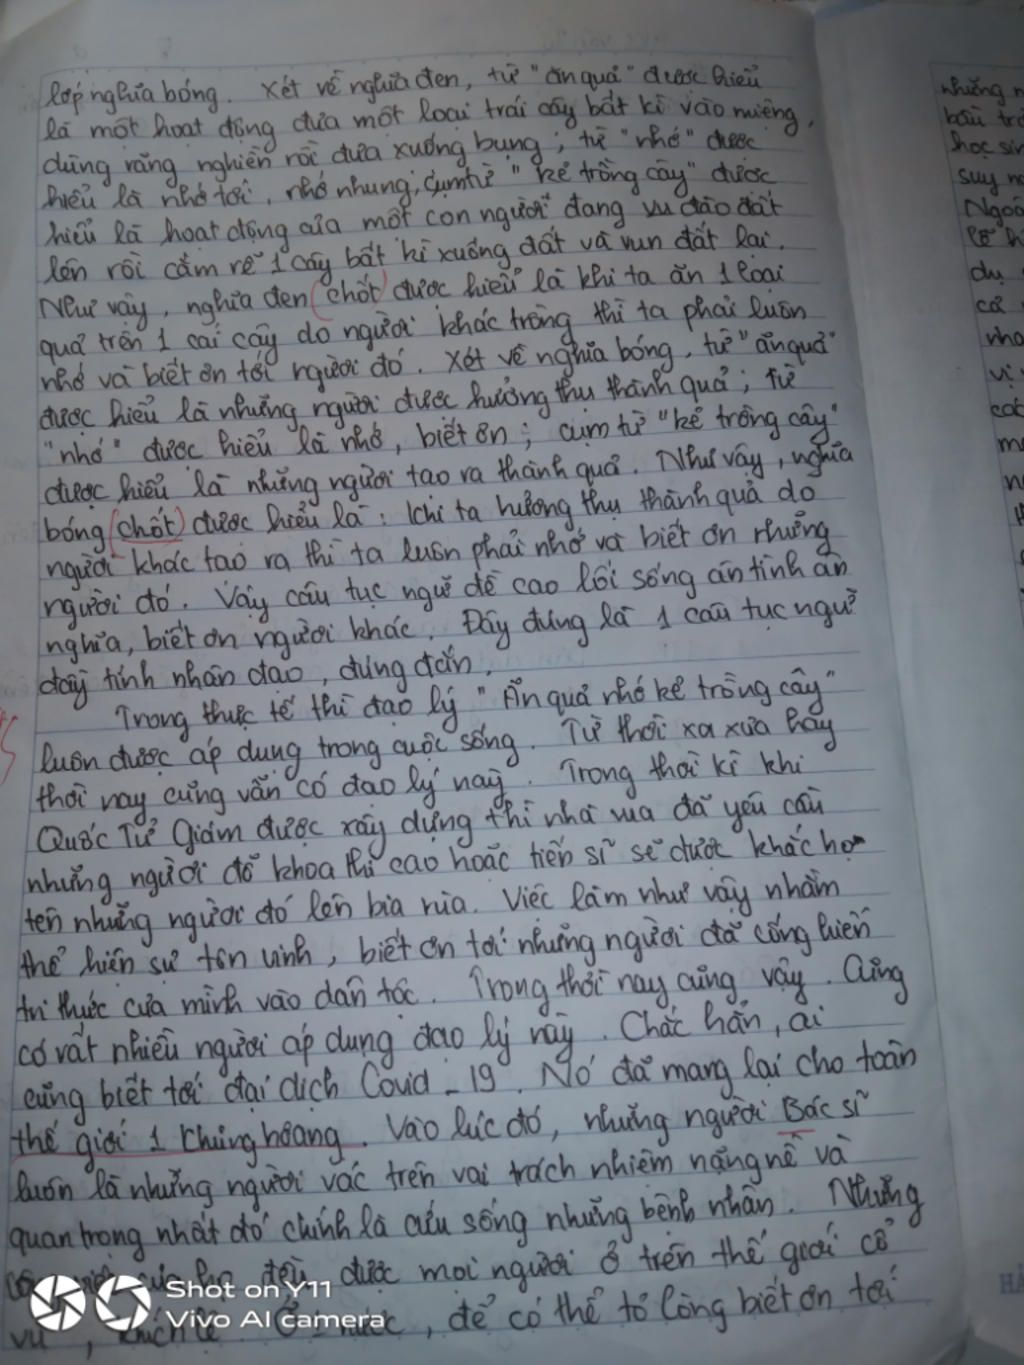 lớp nghĩa bóng. Xét về nghĩa đen, từ "ăn quả" được hiểu
là một hoạt động đưa một loại trái cây bất kì vào miệng,
dùng răng nghiền rồi đưa xuống bụng; từ "nhớ" được
hiểu là nhớ tới, nhớ nhung; cụm từ "kẻ trồng cây" được
hiểu là hoạt động của một con người đang đào đất
lên rồi cắm rễ 1 cây bất kì xuống đất và vun đất lại.
Như vậy, nghĩa đen (chốt) được hiểu là khi ta ăn 1 loại
quả trên 1 cái cây do người khác trồng thì ta phải luôn
nhớ và biết ơn tới người đó. Xét về nghĩa bóng, từ "ăn quả"
được hiểu là những người được hưởng thụ thành quả; từ
"nhớ" được hiểu là nhớ, biết ơn; cụm từ "kẻ trồng cây"
được hiểu là những người tạo ra thành quả. Như vậy, nghĩa
bóng (chốt) được hiểu là: khi ta hưởng thụ thành quả do
người khác tạo ra thì ta luôn phải nhớ và biết ơn những
người đó. Vậy câu tục ngữ đề cao lối sống ân tình ân
nghĩa, biết ơn người khác. Đây đúng là 1 câu tục ngữ
đầy tính nhân đạo, đúng đắn.
Trong thực tế thì đạo lý "Ăn quả nhớ kẻ trồng cây"
luôn được áp dụng trong cuộc sống. Từ thời xa xưa hay
thời nay cũng vẫn có đạo lý này. Trong thời kì khi
Quốc Tử Giám được xây dựng thì nhà vua đã yêu cầu
những người đỗ khoa thi cao hoặc tiến sĩ sẽ được khắc họ
tên những người đó lên bia rùa. Việc làm như vậy nhằm
thể hiện sự tôn vinh, biết ơn tới những người đã cống hiến
tri thức của mình vào dân tộc. Trong thời nay cũng vậy. Cũng
có vất nhiều người áp dụng đạo lý này. Chắc hẳn, ai
cũng biết tới đại dịch Covid_19. Nó đã mang lại cho toàn
thế giới 1 khủng hoảng. Vào lúc đó, những người Bác sĩ
luôn là những người vác trên vai trách nhiệm nặng nề và
quan trọng nhất đó chính là cứu sống những bệnh nhân. Những
đều được mọi người ở trên thế giới cổ
vũ, khích lệ. Ở nước, để có thể tỏ lòng biết ơn tới
những
học sin
suy
Ngoà
dụ
cả
vị
các
Shot on Y11
Vivo AI camera